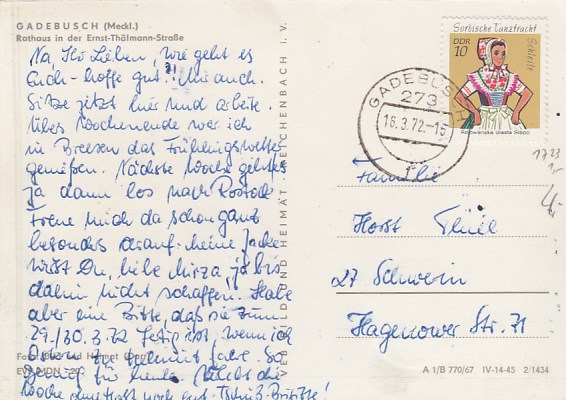 GADEBUSCH (Meckl.)
Rathaus in der Ernst-Thälmann-Straße
Na, Ihr Lieben, wie geht es
Euch - hoffe gut! Mir auch.
Sitze jetzt hier und arbeite.
Übers Wochenende war ich
in Breesen das Frühlingswetter
genießen. Nächste Woche geht es
ja dann los nach Rostock
Freue mich da schon ganz
besonders darauf. Meine Jacke
wirst Du, liebe Mirza, ja bis
dahin nicht schaffen. Habe
aber eine Bitte, daß sie zum
29./30.3.72 fertig ist, wenn ich
Ostern zu fahre. So
Genug für heute.
Woche noch gut. Tschüß Brigitte!
Foto:
VERLAG BILD UND HEIMAT REICHENBACH I. V.
Sorbische Tanztracht
Schleife
DDR
10
GADEBUSCH
273
16.3.72.-15
1723
Familie
Horst
27 Schwerin
Hagenower Str. 71
A 1/B 770/67 IV-14-45 2/1434